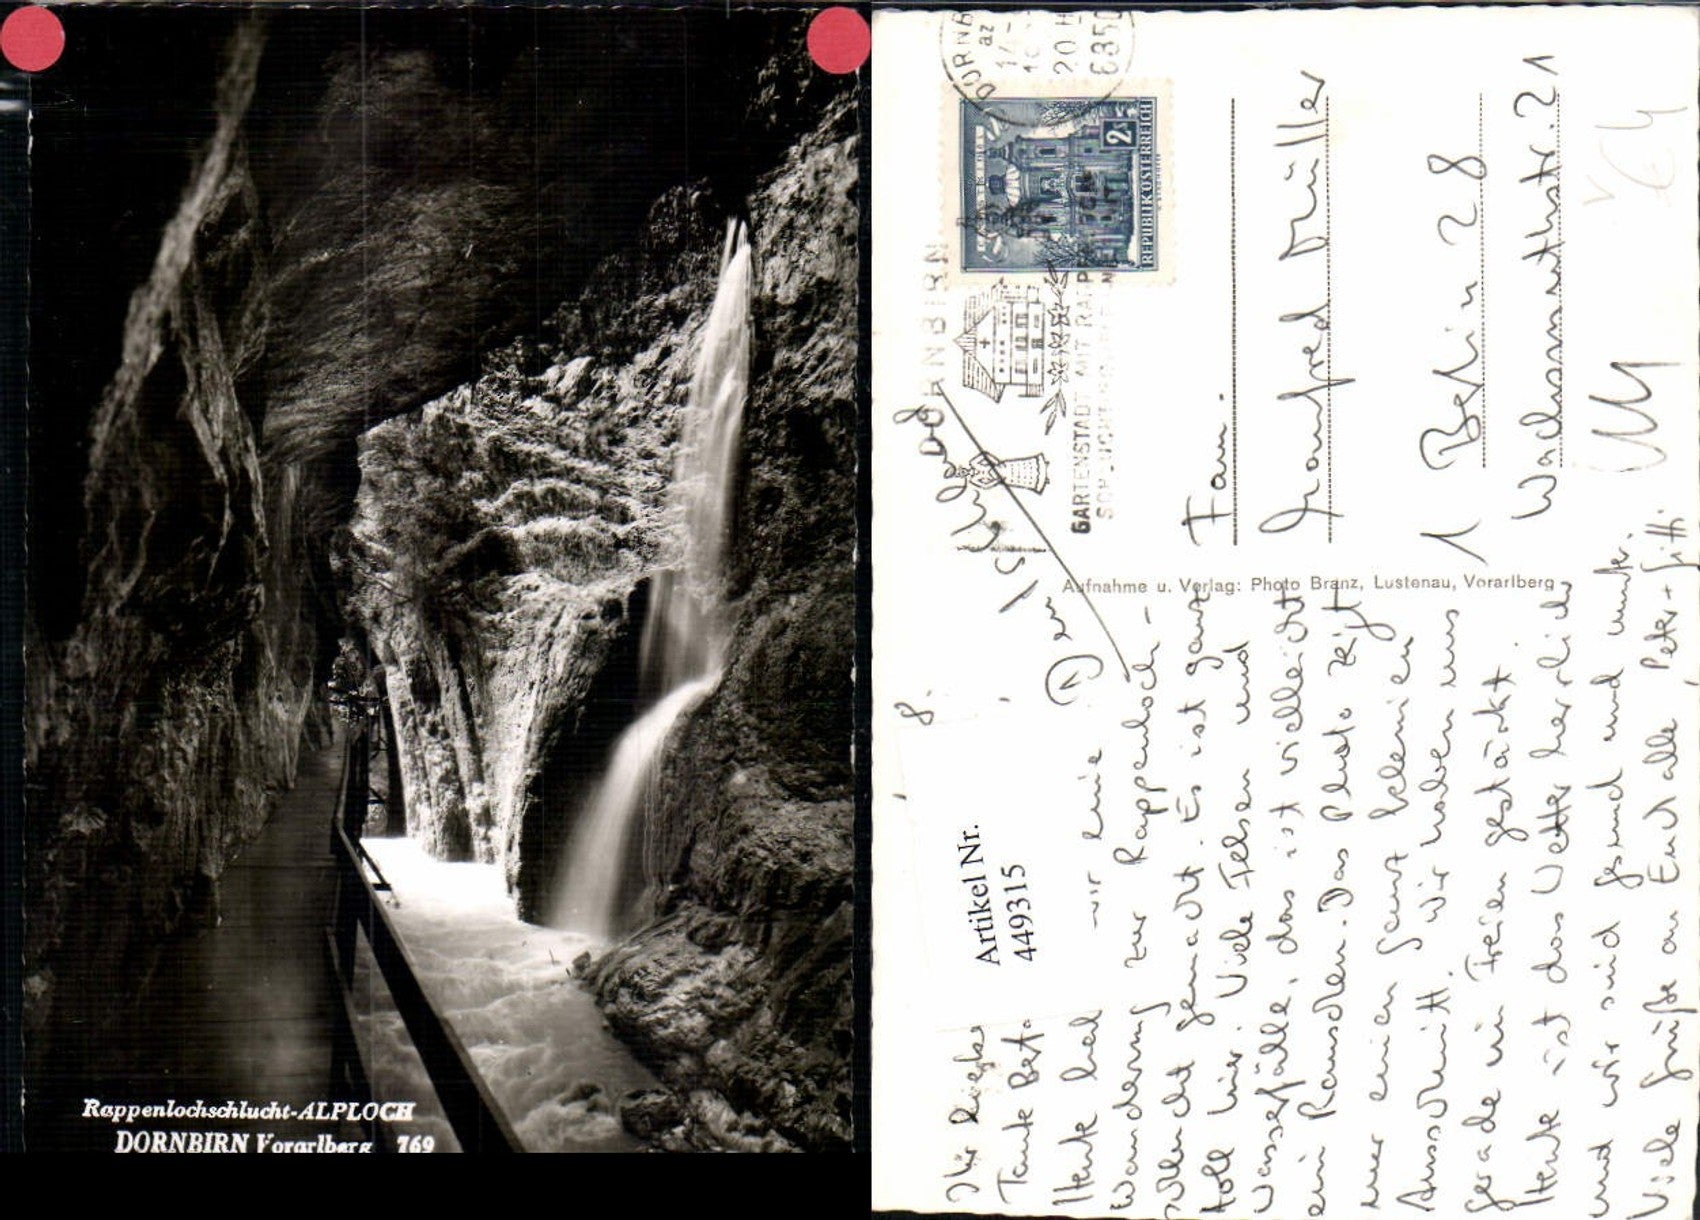 Rappenlochschlucht-ALPLOCH
DORNBIRN Vorarlberg 769
DORNB
20 H
6850
2S
REPUBLIK ÖSTERREICH
DORNBIRN
GARTENSTADT MIT RAPP
Fam.
Manfred Müller
1 Berlin 28
Wachsmuthstr. 21
Aufnahme u. Verlag: Photo Branz, Lustenau, Vorarlberg
Artikel Nr.
449315
Ihr Liebe
Tante
Heute wir eine
Wanderung zur Rappenloch-
schlucht gemacht. Es ist ganz
toll hier. Viele Felsen und
Wasserfälle, das ist vielleicht
ein Rauschen. Das Photo zeigt
nur einen ganz kleinen
Ausschnitt. Wir haben uns
gerade im Freien gestärkt.
Heute ist das Wetter herrlich
und wir sind gesund und munter.
Viele Grüße an Euch alle Peter + Gitti